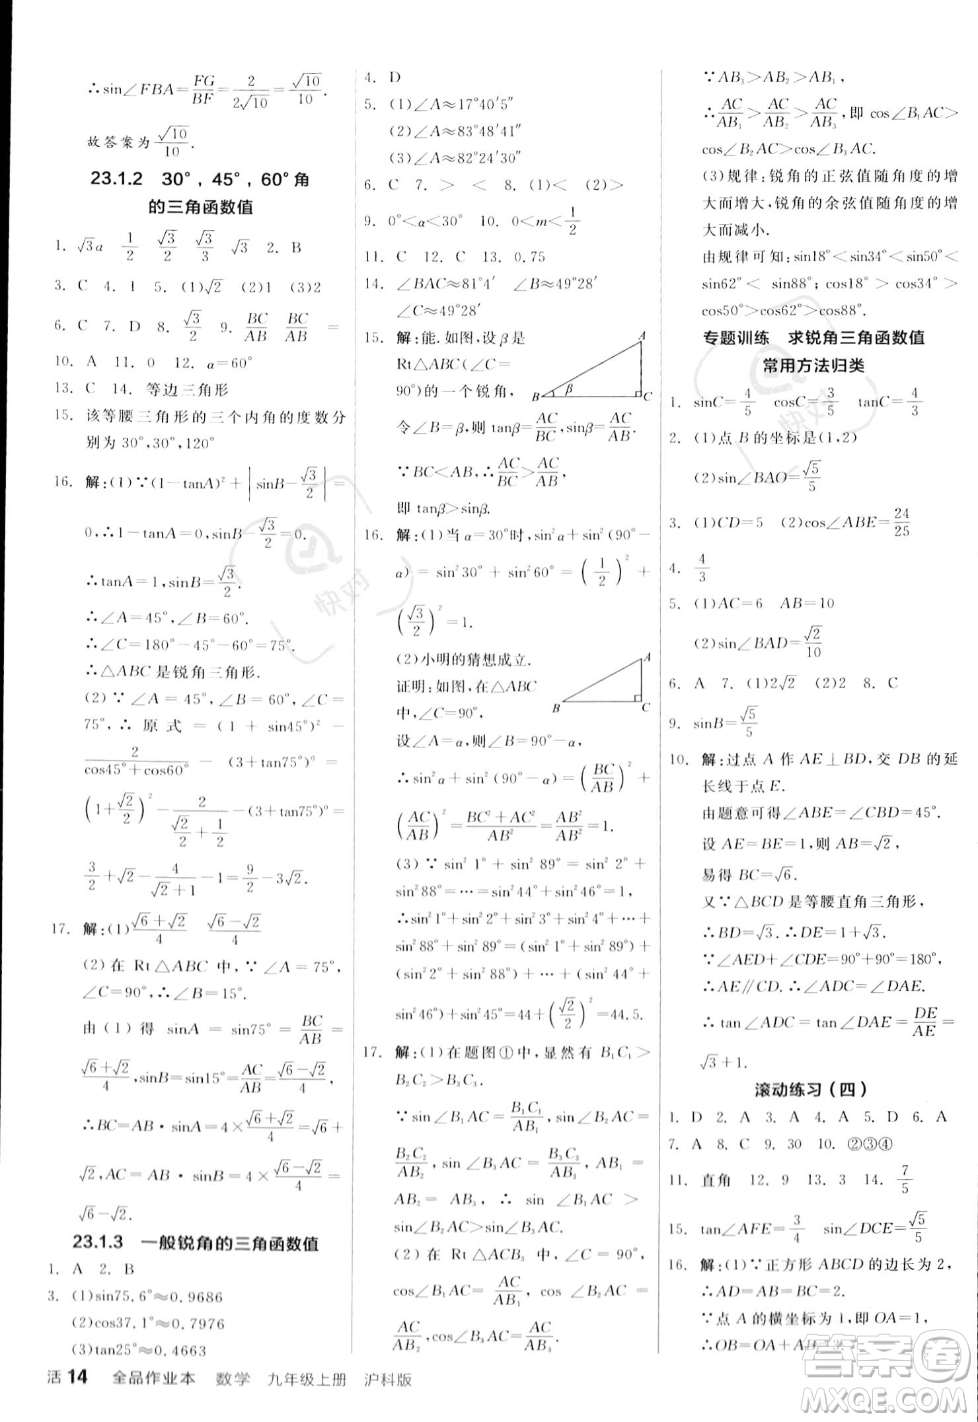 ∴sin∠FBA=FG/BF=2/(2√10)=√10/10.
故答案为√10/10.
23.1.2 30°，45°，60°角
的三角函数值
1. √3a 1/2 √3/2 √3/3 √3 2. B
3. C 4. 1 5. (1)√2 (2)1 (3)2
6. C 7. D 8. √3/2 9. BC/AB BC/AB =
10. A 11. 0 12. α=60°
13. C 14. 等边三角形
15. 该等腰三角形的三个内角的度数分
别为30°,30°,120°
16. 解:(1)∵(1-tanA)²+|sinB-√3/2|
=0,∴1-tanA=0,sinB-√3/2=0.
∴tanA=1,sinB=√3/2.
∴∠A=45°,∠B=60°.
∴∠C=180°-45°-60°=75°.
∴△ABC是锐角三角形.
(2)∵∠A=45°,∠B=60°,∠C=
75°,∴原式=(1+sin45°)²-
2/(cos45°+cos60°)-(3+tan75°)⁰=
(1+√2/2)²-2/(√2/2+1/2)-(3+tan75°)⁰=
3/2+√2-4/(√2+1)-1=9/2-3√2.
17. 解:(1)(√6+√2)/4 (√6-√2)/4
(2)在Rt△ABC中,∵∠A=75°,
∠C=90°,∴∠B=15°.
由(1)得sinA=sin75°=BC/AB=
(√6+√2)/4,sinB=sin15°=AC/AB=(√6-√2)/4,
∴BC=AB·sinA=4×(√6+√2)/4=√6+
√2,AC=AB·sinB=4×(√6-√2)/4=
√6-√2.
23.1.3 一般锐角的三角函数值
1. A 2. B
3. (1)sin75.6°≈0.9686
(2)cos37.1°≈0.7976
(3)tan25°≈0.4663
4. D
5. (1)∠A≈17°40′5″
(2)∠A≈83°48′41″
(3)∠A≈77°44′50″
6. C 7. > < 8. (1)< (2)>
9. 0°<α<30° 10. 0<m<1/2
11. C 12. C 13. 0.75
14. ∠BAC≈81°4′ ∠B≈49°28′
∠C≈49°28′
15. 解:能.如图,设β是
Rt△ABC(∠C=
90°)的一个锐角,
A
B
C
β
令∠B=β,则tanβ=AC/BC,sinβ=AC/AB.
∵BC<AB,∴AC/BC>AC/AB,
即tanβ>sinβ.
16. 解:(1)当α=30°时,sin²α+sin²(90°-
α)=sin²30°+sin²60°=(1/2)²+
(√3/2)²=1.
(2)小明的猜想成立.
证明:如图,在△ABC
中,∠C=90°,
A
B
C
设∠A=α,则∠B=90°-α.
∴sin²α+sin²(90°-α)=(BC/AB)²+
(AC/AB)²=(BC²+AC²)/AB²=AB²/AB²=1.
(3)∵sin²1°+sin²89°=sin²2°+
sin²88°=…=sin²44°+sin²46°=1,
∴sin²1°+sin²2°+sin²3°+…+
sin²88°+sin²89°=(sin²1°+sin²89°)+
(sin²2°+sin²88°)+…+(sin²44°+
sin²46°)+sin²45°=44+(√2/2)²=44.5.
17. 解:(1)在题图①中,显然有B₁C₁>
B₂C₂>B₃C₃,AB₁=AB₂=AB₃.
∵sin∠B₁AC=B₁C₁/AB₁,sin∠B₂AC=
B₂C₂/AB₂,sin∠B₃AC=B₃C₃/AB₃,
AB₁=AB₂=AB₃,∴sin∠B₁AC>
sin∠B₂AC>sin∠B₃AC.
(2)∵在Rt△ACB₃中,∠C=90°,
cos∠B₁AC=AC/AB₁,cos∠B₂AC=
AC/AB₂,cos∠B₃AC=AC/AB₃,
∵AB₃>AB₂>AB₁,
∴AC/AB₁>AC/AB₂>AC/AB₃,即cos∠B₁AC>
cos∠B₂AC>cos∠B₃AC.
(3)规律:锐角的正弦值随角度的增
大而增大,锐角的余弦值随角度的增
大而减小.
由规律可知:sin18°<sin34°<sin50°<
sin62°<sin88°;cos18°>cos34°>
cos50°>cos62°>cos88°.
专题训练 求锐角三角函数值
常用方法归类
1. sinC=4/5 cosC=3/5 tanC=4/3
2. (1)点B的坐标是(1,2)
(2)sin∠BAO=√5/5
3. (1)CD=5 (2)cos∠ABE=24/25
4. 4/3
5. (1)AC=6 AB=10
(2)sin∠BAD=√2/10
6. A 7. (1)2√2 (2)2 8. C
9. sinB=√5/5
10. 解:过点A作AE⊥BD,交DB的延
长线于点E.
由题意可得∠ABE=∠CBD=45°.
设AE=BE=1,则AB=√2,
易得BC=√6.
又∵△BCD是等腰直角三角形,
∴BD=√3.
∵∠BDC+∠AED=90°+90°=180°,
∴AE∥CD.∴∠ACD=∠DAE.
∴tan∠ACD=tan∠DAE=DE/AE=
√3+1.
滚动练习(四)
1. D 2. A 3. A 4. A 5. D 6. A
7. A 8. C 9. 30 10. ②③④
11. 直角 12. 9 13. 3 14. 7/5
15. tan∠AFE=3/4 sin∠DCE=√5/5
16. 解:(1)∵正方形ABCD的边长为2,
∴AB=2.
∵点A的横坐标为1,
∴OB=OA+AB=3.
活 14 全品作业本 数学 九年级上册 沪科版
快对
快对
答案圈